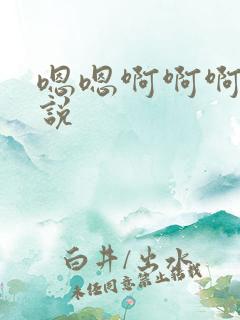 嗯嗯啊啊啊
說
白井/出水
未经同意禁止转载